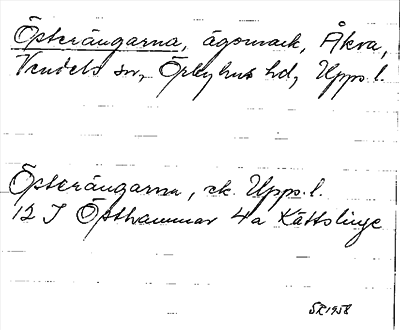 Österängarna, ägomark, Åkra,
Vendels sn, Örbyhus hd, Upps. l.
Österängarna, ek. Upps. l.
12 I Östhammar 4a Kättslinge
SR 1958